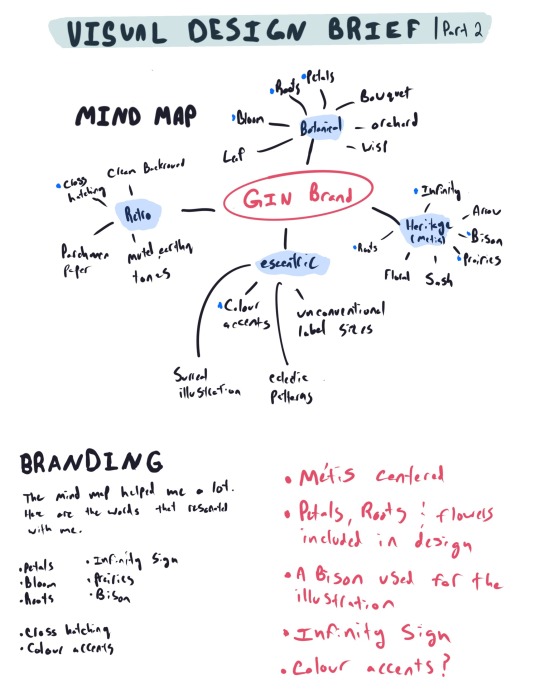 VISUAL DESIGN BRIEF | Part 2
MIND MAP
Roots
Petals
Bouquet
Bloom
Botanical
orchard
Leaf
wisp
Clean Background
Cross
hatching
Retro
Parchmen
Paper
muted earthy
tones
GIN Brand
Infinity
Arrow
Heritage
(Metis)
Bison
Prairies
Roots
Floral
Sash
escentric
Colour
accents
unconventional
label sizes
Surreal
illustration
eclectic
patterns
BRANDING
The mind map helped me a lot.
Here are the words that resonated
with me.
• Petals
• Bloom
• Roots
• Infinity Sign
• Prairies
• Bison
• Cross hatching
• Colour accents
• Métis centered
• Petals, Roots & flowers
included in design
• A Bison used for the
illustration
• Infinity Sign
• Colour accents?